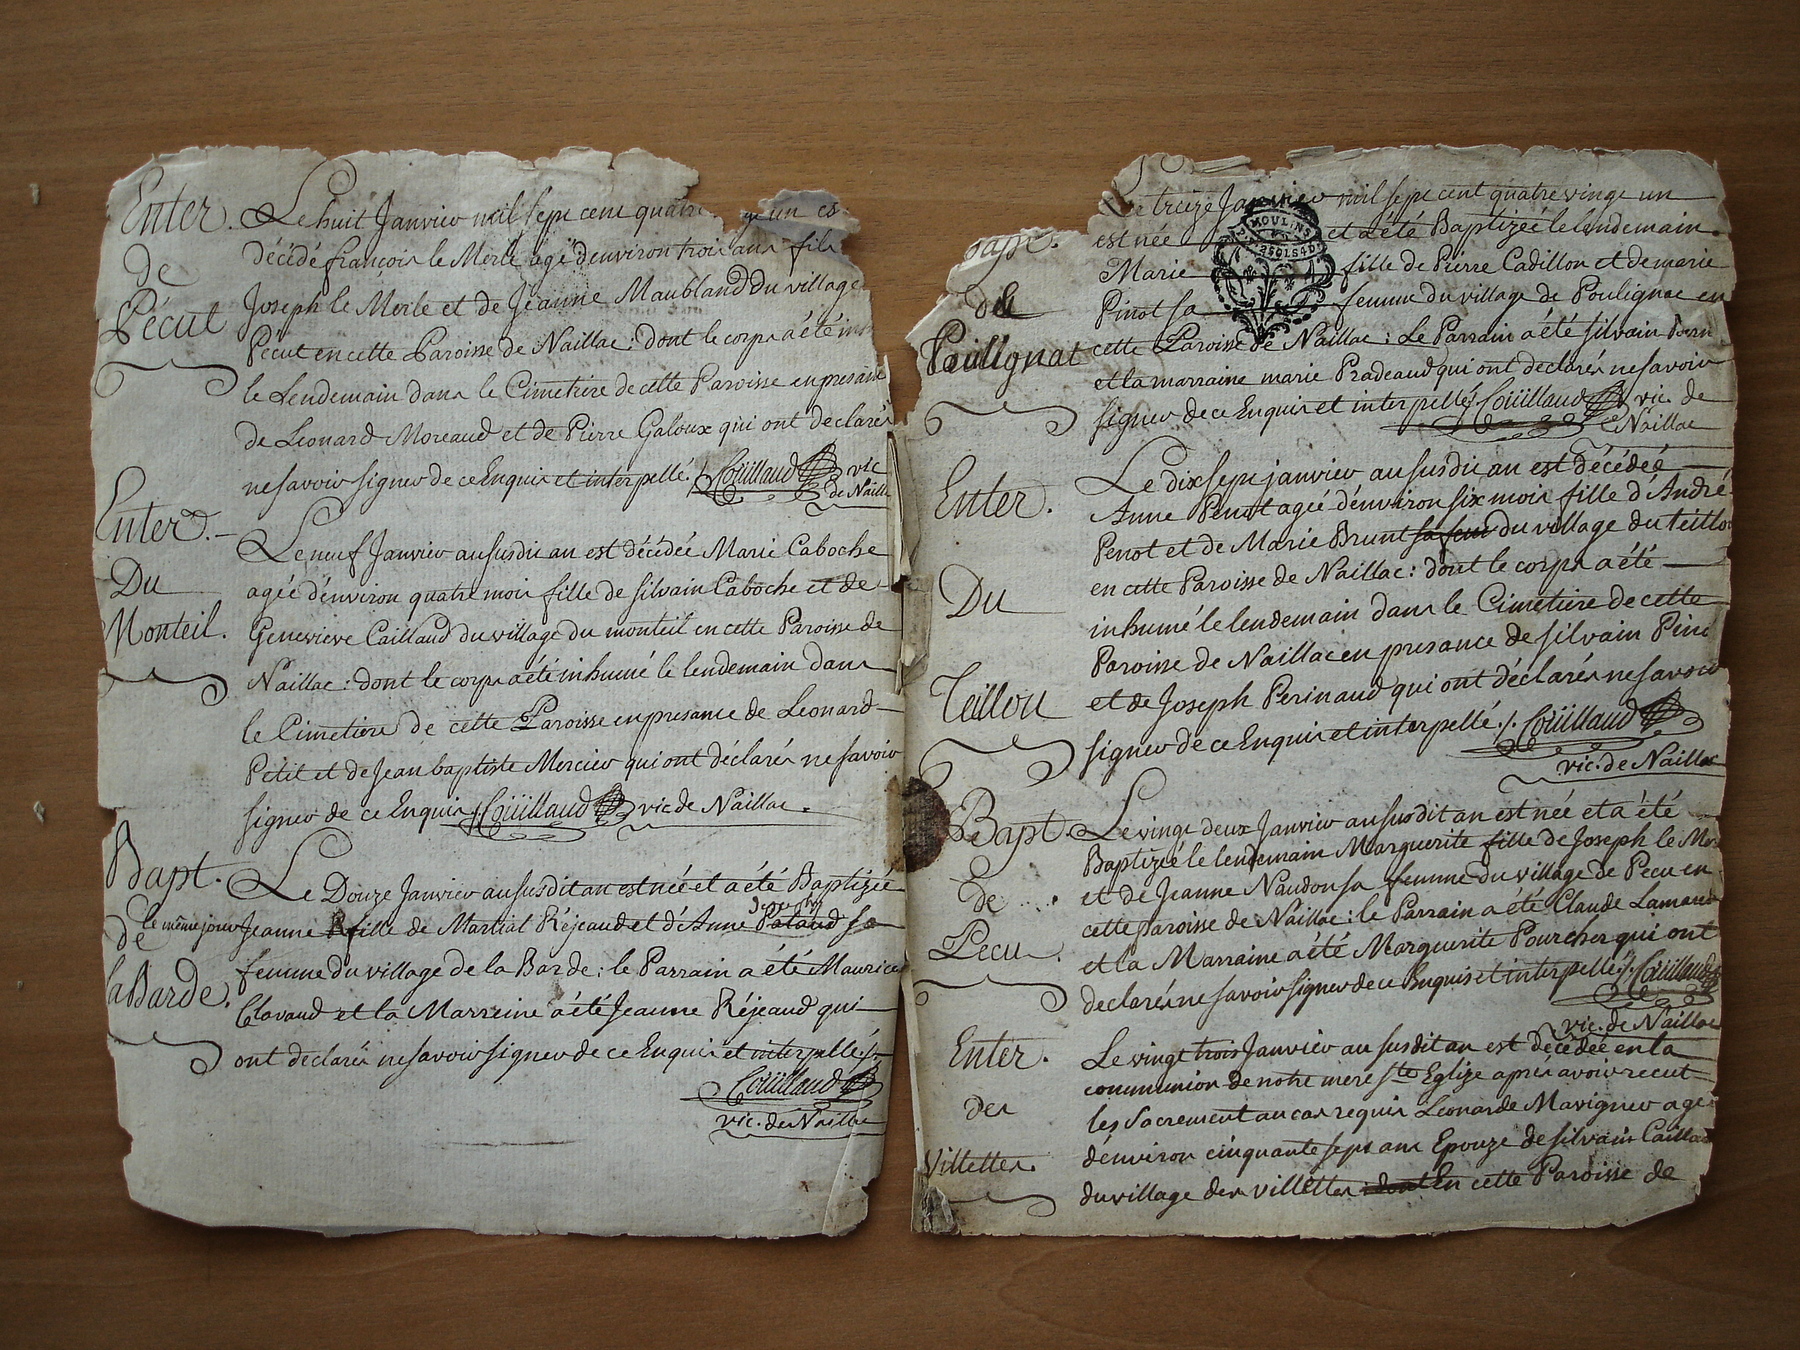 Enter.
de
Pécut
Le huit Janvier mil sept cent quatre un es
décédé françois le Merle agé d'environ trois ans fils
Joseph le Merle et de Jeanne Maubland du village
Pécut en cette Paroisse de Naillac : dont le corps a été
le Lendemain dans le Cimetiere de cette Paroisse en presance
de Léonard Moreaud et de Pierre Galoux qui ont declarés
ne savoir signer de ce Enquis et interpellé ./. Coüillaud vic
de Naill
Enter.
Du
Monteil.
Le neuf Janvier au susdit an est décédée Marie Caboche
agée d'environ quatre mois fille de silvain Caboche et de
Genevieve Caillaud du village du monteil en cette Paroisse de
Naillac : dont le corps a été inhumé le lendemain dans
le Cimetiere de cette Paroisse en presance de Léonard
Petit et de Jean baptiste Mercier qui ont déclarés ne savoir
signer de ce Enquis ./. Coüillaud vic de Naillac .
Bapt.
de
la Barde.
Le Douze Janvier au susdit an est née et a été Baptizée
le même jour Jeanne fille de Martial Réjeaud et d'Anne Pataud sa
femme du village de la Barde : le Parrain a été Maurice
Clavaud et la Marreine a été Jeanne Réjeaud qui
ont declarés ne savoir signer de ce Enquis et interpellés ./.
Coüillaud
vic. de Naillac
Bapt.
de
Poulignat
Le treize Janvier mil sept cent quatre vingt un
MOULINS
est née et a été Baptizée le lendemain
Marie fille de Pierre Cadillon et de marie
Pinot sa femme du village de Poulignac en
cette Paroisse de Naillac : Le Parrain a été silvain
et la marraine marie Pradeaud qui ont declarés ne savoir
signer de ce Enquis et interpellés ./. Coüillaud vic. de
Naillac
Enter.
Du
Teillou
Le dix sept janvier au susdit an est décédée
Anne Penot agée d'environ six mois fille d'André
Penot et de Marie Brunt du village du teillou
en cette Paroisse de Naillac : dont le corps a été
inhumé le lendemain dans le Cimetiere de cette
Paroisse de Naillac en presance de silvain Pino
et de Joseph Perinaud qui ont déclarés ne savoir
signer de ce Enquis et interpellé ./. Coüillaud
vic. de Naillac
Bapt.
de
Pecu.
Le vingt deux Janvier au susdit an est née et a été
Baptizée le lendemain Marguerite fille de Joseph le Mer
et de Jeanne Naudon sa femme du village de Pecu en
cette Paroisse de Naillac : le Parrain a été Claude Lamaud
et la Marraine a été Marguerite Pourcher qui ont
declarés ne savoir signer de ce Enquis et interpellés ./. Coüillaud
vic. de Naillac
Enter.
des
Villettes.
Le vingt trois Janvier au susdit an est décédée en la
communion de notre mere Ste Eglise apres avoir recut
les Sacrement au cas requis Léonarde Mavigner agé
d'environ cinquante sept ans Epouze de silvain Caillaud
du village des villettes dont En cette Paroisse de